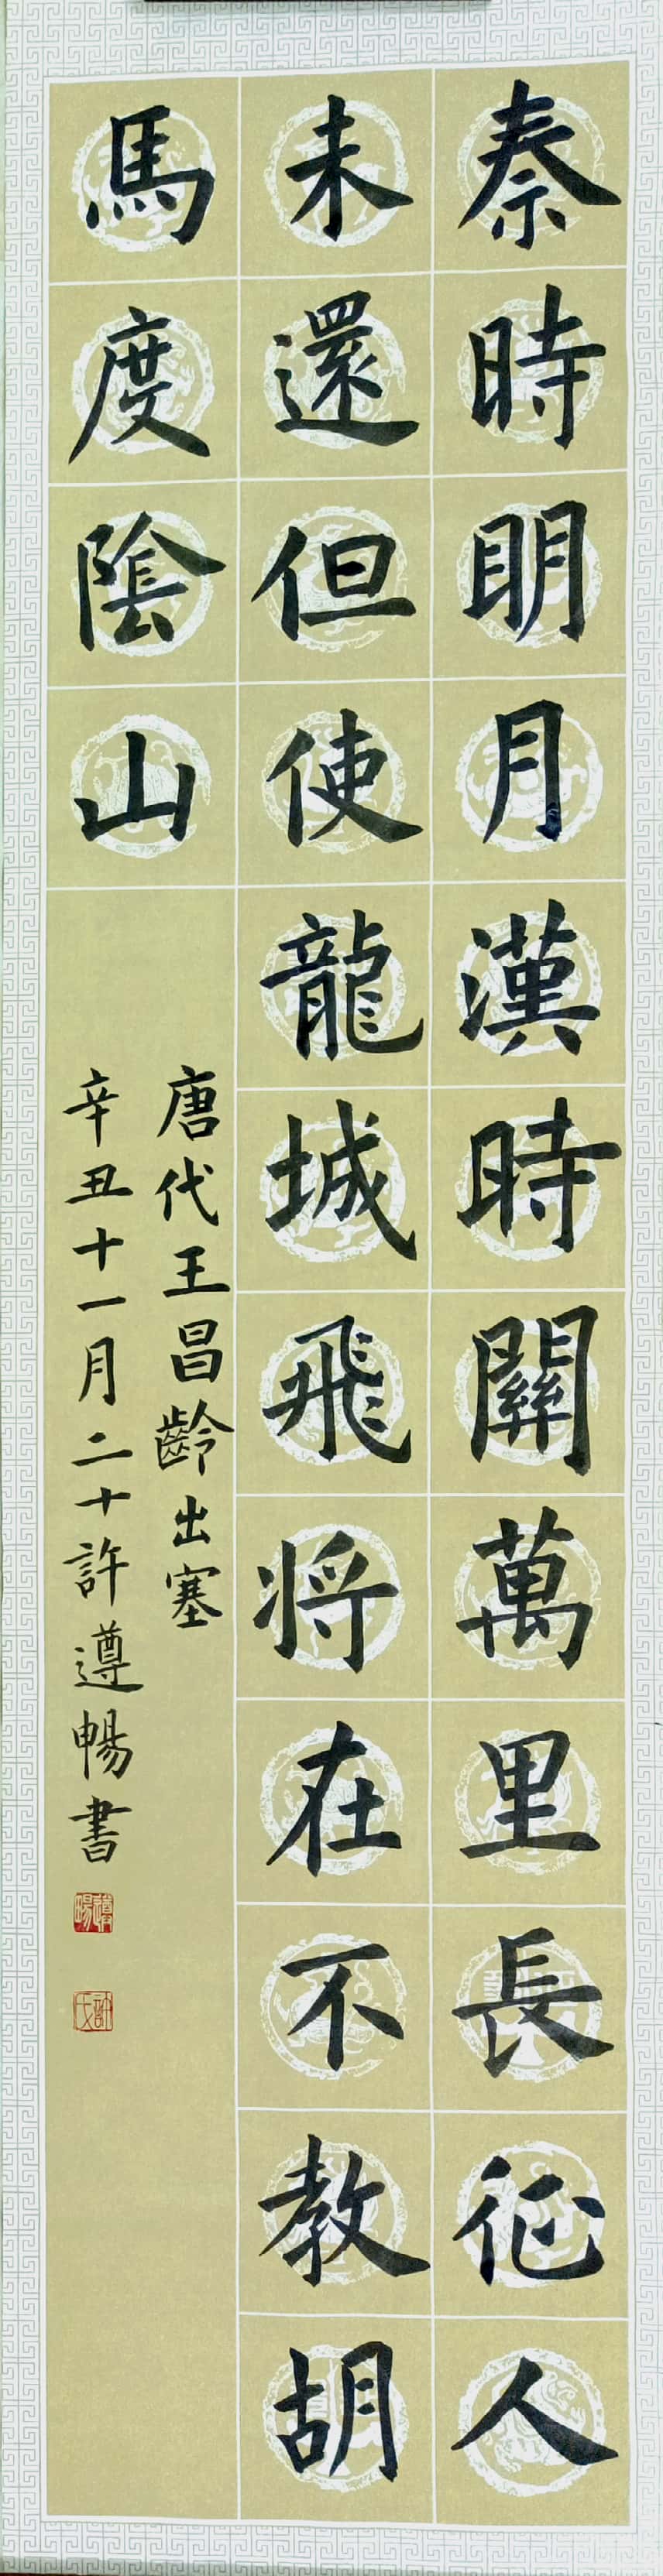 秦時明月漢時關萬里長征人
未還但使龍城飛将在不教胡
馬度陰山
唐代王昌齡出塞
辛丑十一月二十許遵暢書
遵暢
許氏